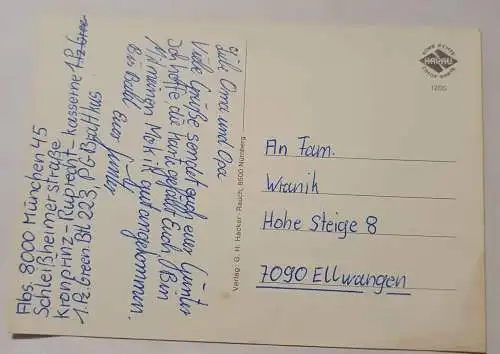 Abs. 8000 München 45
Schleißheimerstraße
Kronprinz-Ruprecht-kaserne
1.Pz Gren Btl 223, PG
Liebe Oma und Opa
Viele Grüße sendet euch euer Günter
Ich hoffe, die Karte gefällt Euch. Bin
in München
gut angekommen.
Bis bald euer Günter
Verlag: G. H. Hacker-Rausch, 8500 Nürnberg
HARAU
1200
An Fam.
Wranik
Hohe Steige 8
7090 Ellwangen